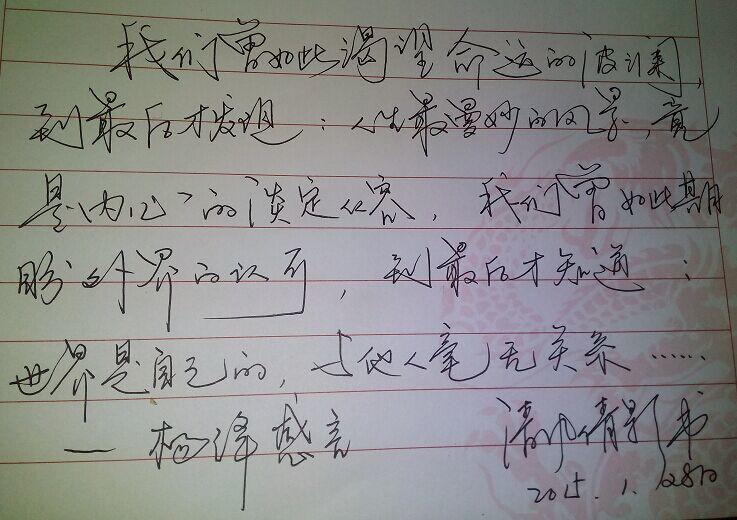 我们曾如此渴望命运的波澜,
到最后才发现:人生最曼妙的风景,竟
是内心的淡定从容,我们曾如此期
盼外界的认可,到最后才知道:
世界是自己的,与他人毫无关系……
—杨绛感言 倩影书
2015.1.28日